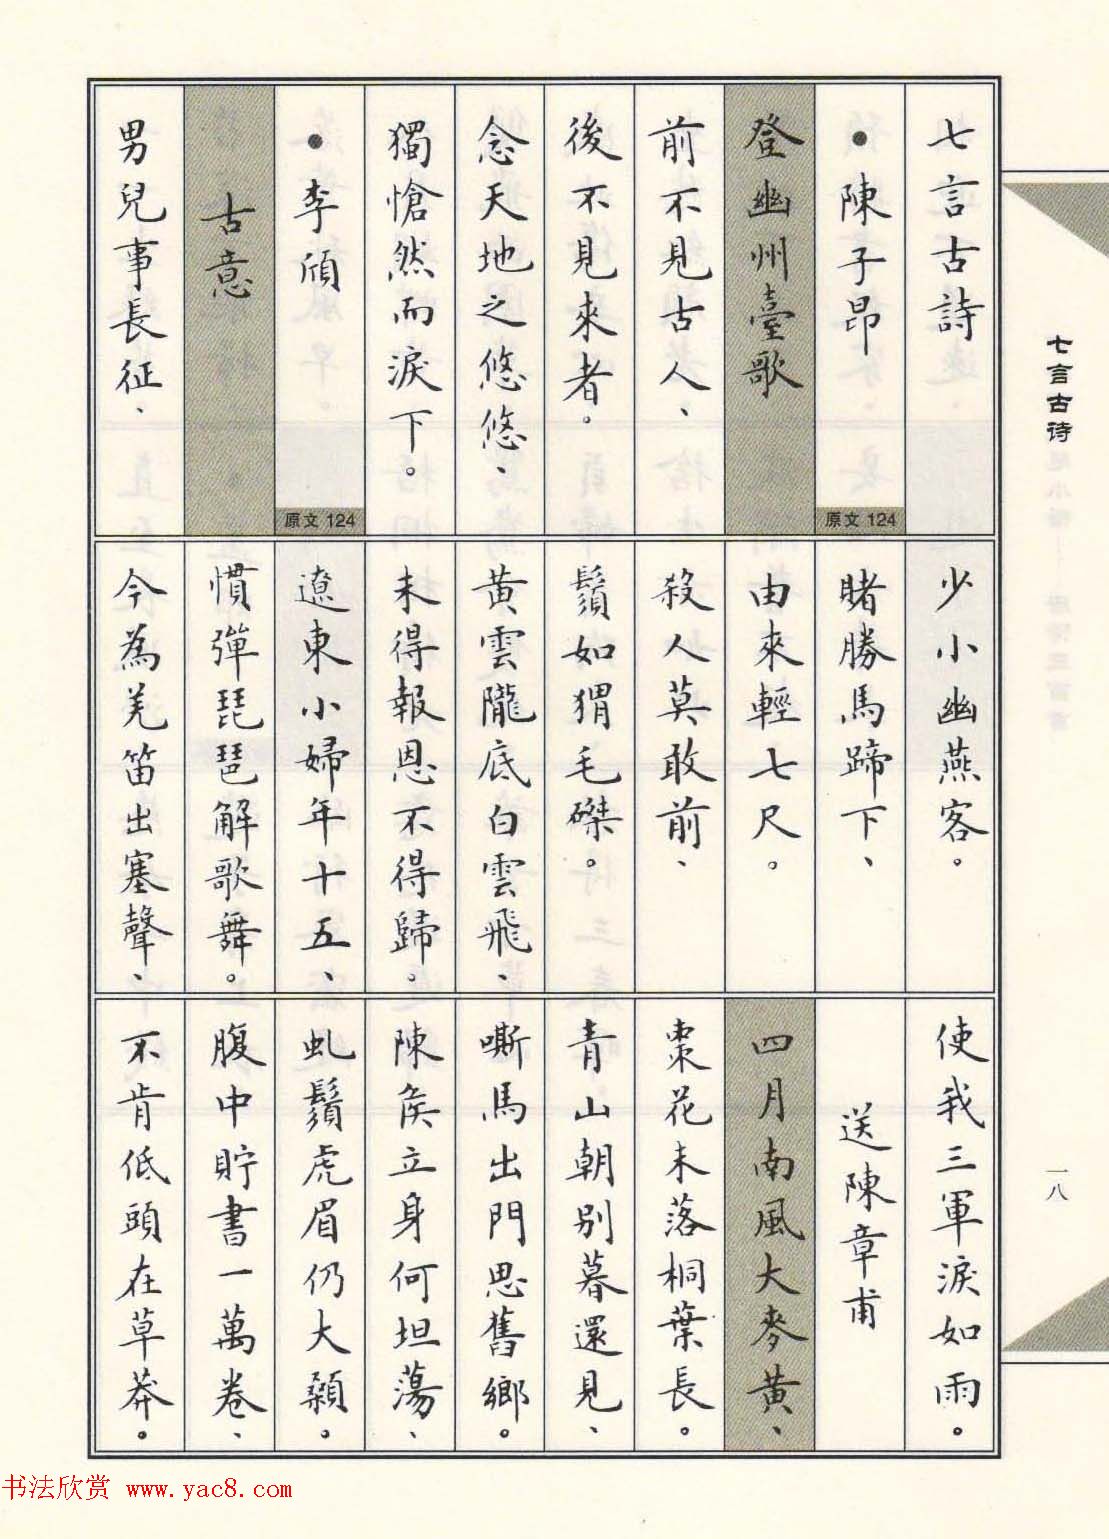 七言古詩
•陳子昂
原文 124
登幽州臺歌
前不見古人、
後不見來者。
念天地之悠悠、
獨愴然而淚下。
•李頎
原文 124
古意
男兒事長征、
少小幽燕客。
賭勝馬蹄下、
由來輕七尺。
殺人莫敢前、
鬚如猬毛磔。
黃雲隴底白雲飛、
未得報恩不得歸。
遼東小婦年十五、
慣彈琵琶解歌舞。
今為羌笛出塞聲、
使我三軍淚如雨。
送陳章甫
四月南風大麥黃、
棗花未落桐葉長。
青山朝別暮還見、
嘶馬出門思舊鄉。
陳侯立身何坦蕩、
虬鬚虎眉仍大顙。
腹中貯書一萬卷、
不肯低頭在草莽。
七言古诗
一八
书法欣赏 www.yac8.com